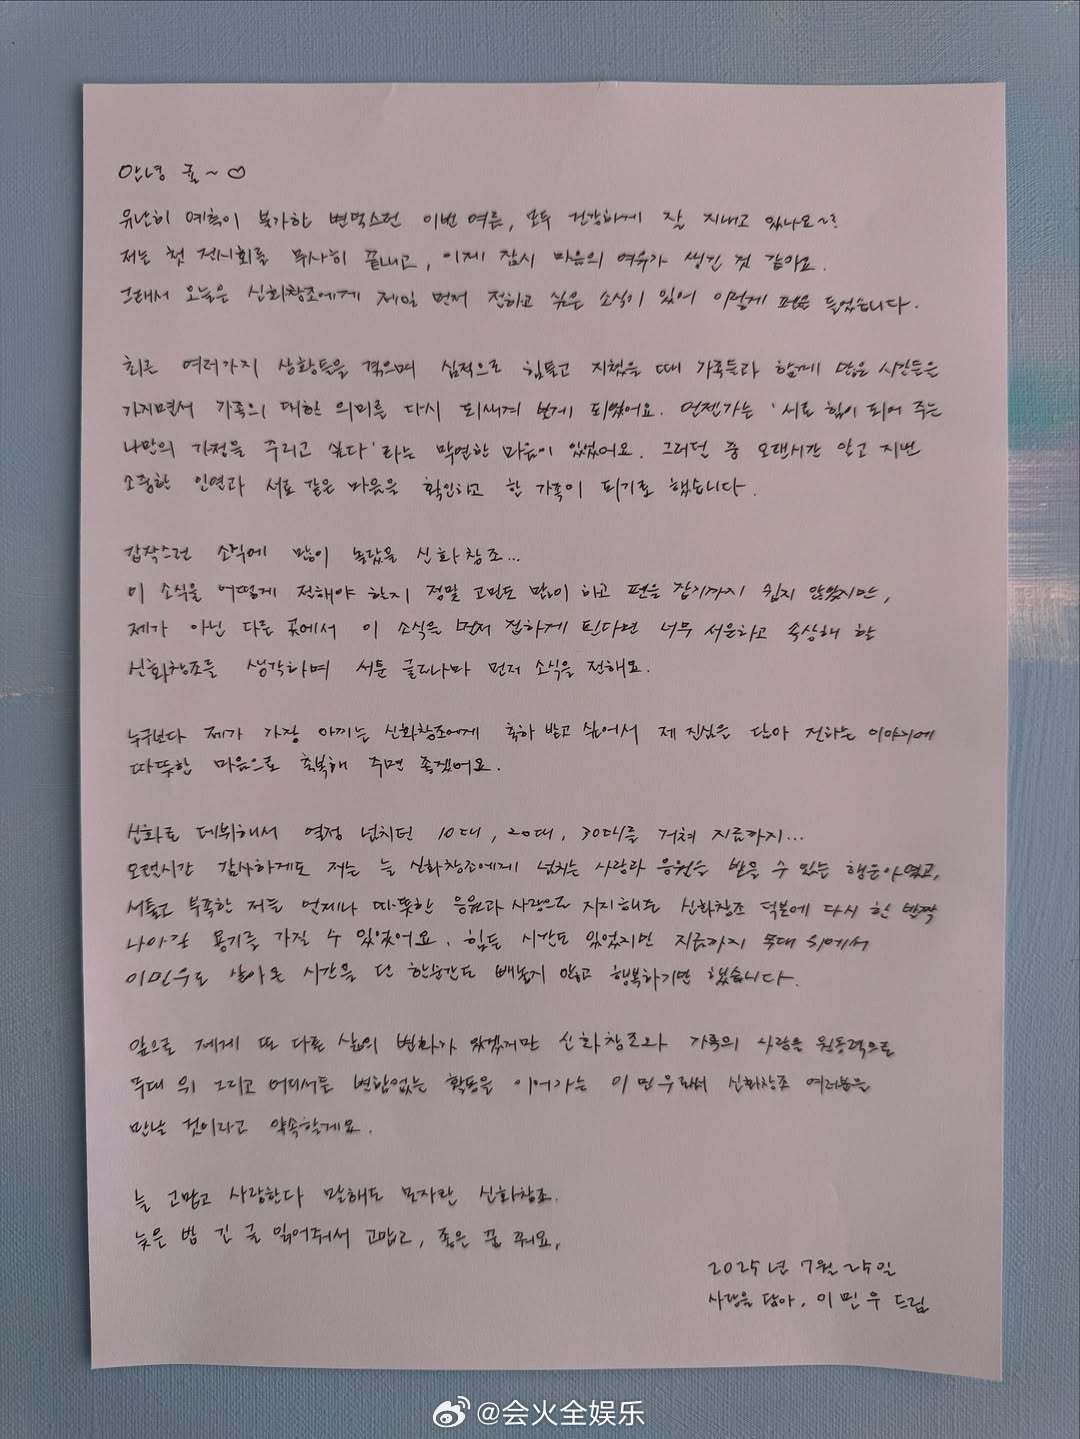 안녕 귤~♡
유난히 예측이 불가한 변덕스런 이번 여름, 모두 건강하게 잘 지내고 있나요~?
저는 첫 전시회를 무사히 끝내고, 이제 잠시 마음의 여유가 생긴 것 같아요.
그래서 오늘은 신화창조에게 제일 먼저 전하고 싶은 소식이 있어 이렇게 펜을 들었습니다.
최근 여러가지 상황들을 겪으며 심적으로 힘들고 지쳤을 때 가족들과 함께 많은 시간들을
가지면서 가족의 대한 의미를 다시 되새겨 보게 되었어요. 언젠가는 '서로 힘이 되어 주는
나만의 가정을 꾸리고 싶다'라는 막연한 마음이 있었어요. 그러던 중 오랜시간 알고 지낸
소중한 인연과 서로 같은 마음을 확인하고 한 가족이 되기로 했습니다.
갑작스런 소식에 많이 놀랐을 신화창조...
이 소식을 어떻게 전해야 할지 정말 고민도 많이 하고 펜을 잡기까지 쉽지 않았지만,
제가 아닌 다른 곳에서 이 소식을 먼저 접하게 된다면 너무 서운하고 속상해 할
신화창조를 생각하며 서툰 글로나마 먼저 소식을 전해요.
누구보다 제가 가장 아끼는 신화창조에게 축하 받고 싶어서 제 진심을 담아 전하는 이야기에
따뜻한 마음으로 축복해 주면 좋겠어요.
신화로 데뷔해서 열정 넘치던 10대, 20대, 30대를 거쳐 지금까지...
오랜시간 감사하게도 저는 늘 신화창조에게 넘치는 사랑과 응원을 받을 수 있는 행운아였고,
서툴고 부족한 저를 언제나 따뜻한 응원과 사랑으로 지지해준 신화창조 덕분에 다시 한 발짝
나아갈 용기를 가질 수 있었어요. 힘든 시간도 있었지만 지금까지 무대 위에서
이민우로 살아온 시간을 단 한순간도 빼놓지 않고 행복하기만 했습니다.
앞으로 제게 또 다른 삶의 변화가 있겠지만 신화창조와 가족의 사랑을 원동력으로
무대 위 그리고 어디서든 변함없는 활동을 이어가는 이민우로서 신화창조 여러분을
만날 것이라고 약속할게요.
늘 고맙고 사랑한다 말해도 모자란 신화창조.
늦은 밤 긴 글 읽어줘서 고맙고, 좋은 꿈 꿔요.
2025년 7월 25일
사랑을 담아, 이민우 드림
@会火全娱乐